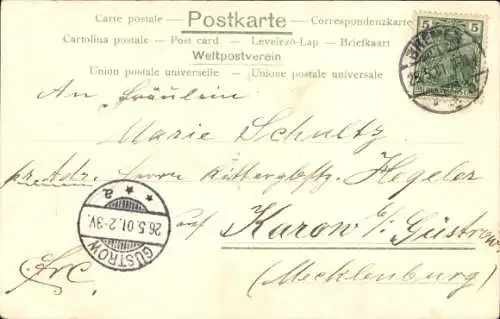 Carte postale – Postkarte – Correspondenzkarte
Cartolina postale – Post card – Levelező-Lap – Briefkaart
Weltpostverein
Union postale universelle – Unione postale universale
5 5
25.5.01
An Fräulein
Marie Schultz
pr. Adr. Herrn Rittergbtz. Hegeler
auf Karow b/. Güstrow.
(Mecklenburg)
Frc.
GÜSTROW
26.5.01.2-3V.
* a *